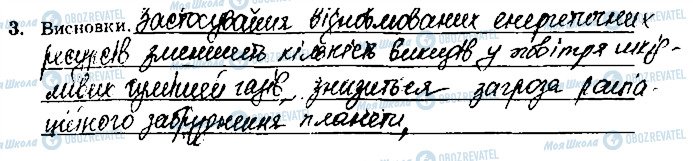 3. Висновки. Застосування відновлюваних енергетичних
ресурсів зменшить кількість викидів у повітря шкід-
ливих газів, знизиться загроза радіа-
ційного забруднення планети,